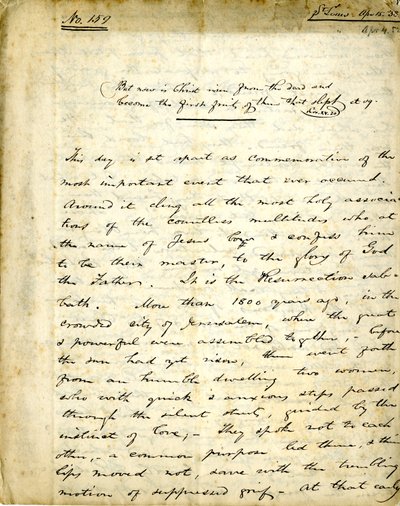 No. 159
St Louis Apr. 15. 38
Apr 4. 5
But now is Christ risen from the dead and
become the first fruits of them that slept
I Cor. XV. 20
This day is set apart as commemorative of the
most important event that ever occurred.
Around it cling all the most holy associa-
tions of the countless multitudes who at
the name of Jesus bow & confess him
to be their master, to the glory of God
the Father. It is the Resurrection sab-
bath. More than 1800 years ago, in the
crowded city of Jerusalem, where the great
& powerful were assembled together, - before
the sun had yet risen, there went forth
from an humble dwelling two women,
who with quick & anxious steps passed
through the silent streets, guided by the
instinct of love, - They spoke not to each
other, - a common purpose led them, & their
lips moved not, save with the trembling
motion of suppressed grief - At that early